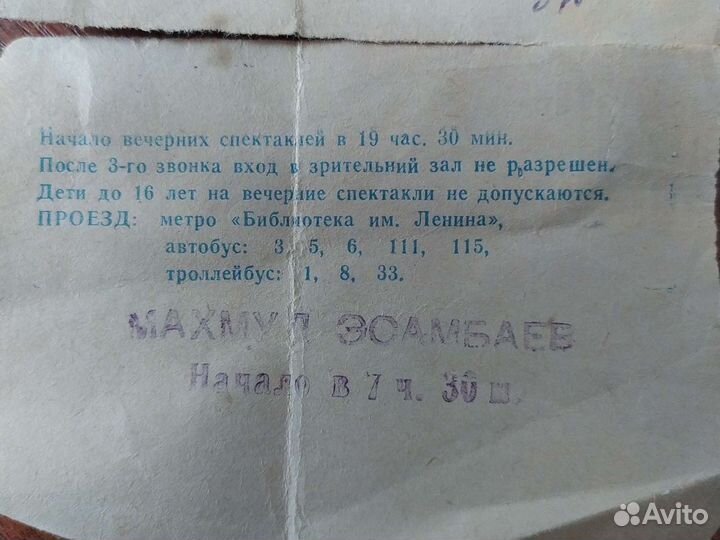 Начало вечерних спектаклей в 19 час. 30 мин.
После 3-го звонка вход в зрительний зал не разрешен.
Дети до 16 лет на вечерние спектакли не допускаются.
ПРОЕЗД: метро «Библиотека им. Ленина»,
автобус: 3, 5, 6, 111, 115,
троллейбус: 1, 8, 33.
МАХМУД ЭСАМБАЕВ
Начало в 7 ч. 30 м.
Avito